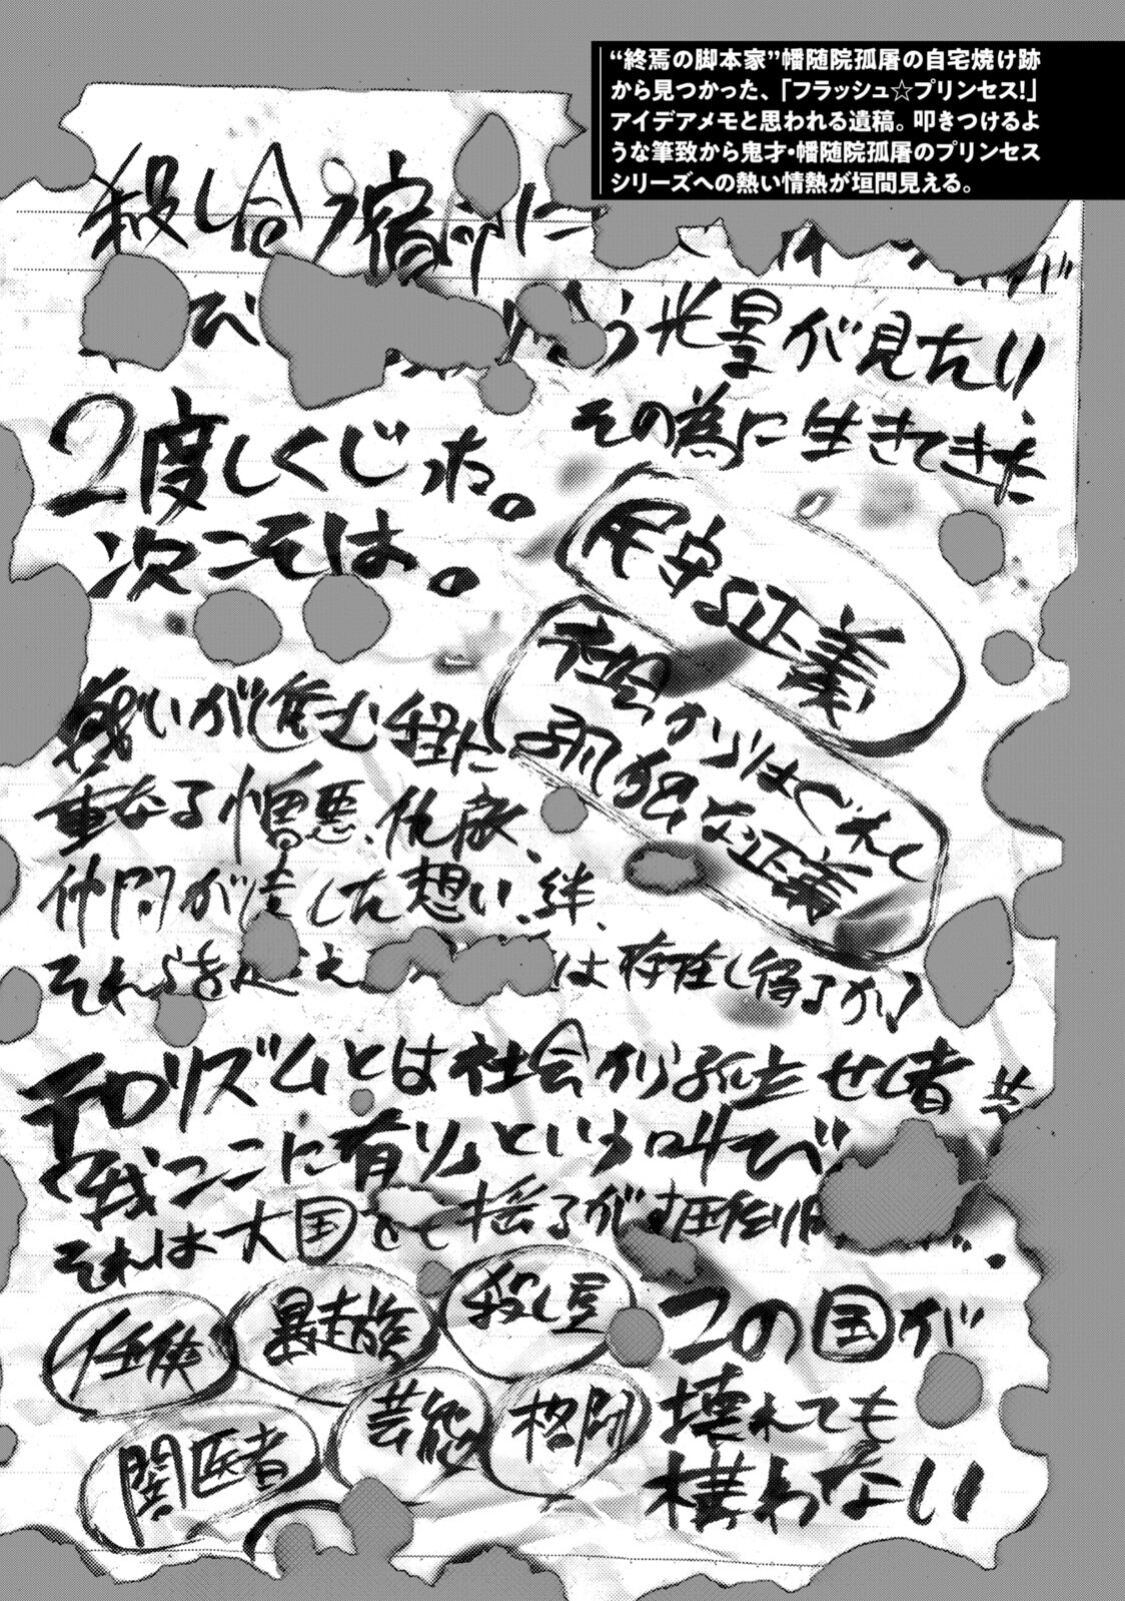 “終焉の脚本家”幡随院孤屠の自宅焼け跡
から見つかった、「フラッシュ☆プリンセス!」
アイデアメモと思われる遺稿。叩きつけるよ
うな筆致から鬼才・幡随院孤屠のプリンセス
シリーズへの熱い情熱が垣間見える。
殺し合う宿命に
び
う光景が見たい
その為に生きてきた
2度しくじった。
次こそは。
正義
からはぐれた
孤独な正義
戦いが進む程に
重なる憎悪、仇敵、
仲間が遺した想い、絆、
それらを超え
は存在し得るか?
テロリズムとは社会から孤立せし者
我ここに有りという叫び
それは大国をも揺るがす圧倒的
任侠
暴走族
殺し屋
闇医者
芸能
格闘
この国が
壊れても
構わない